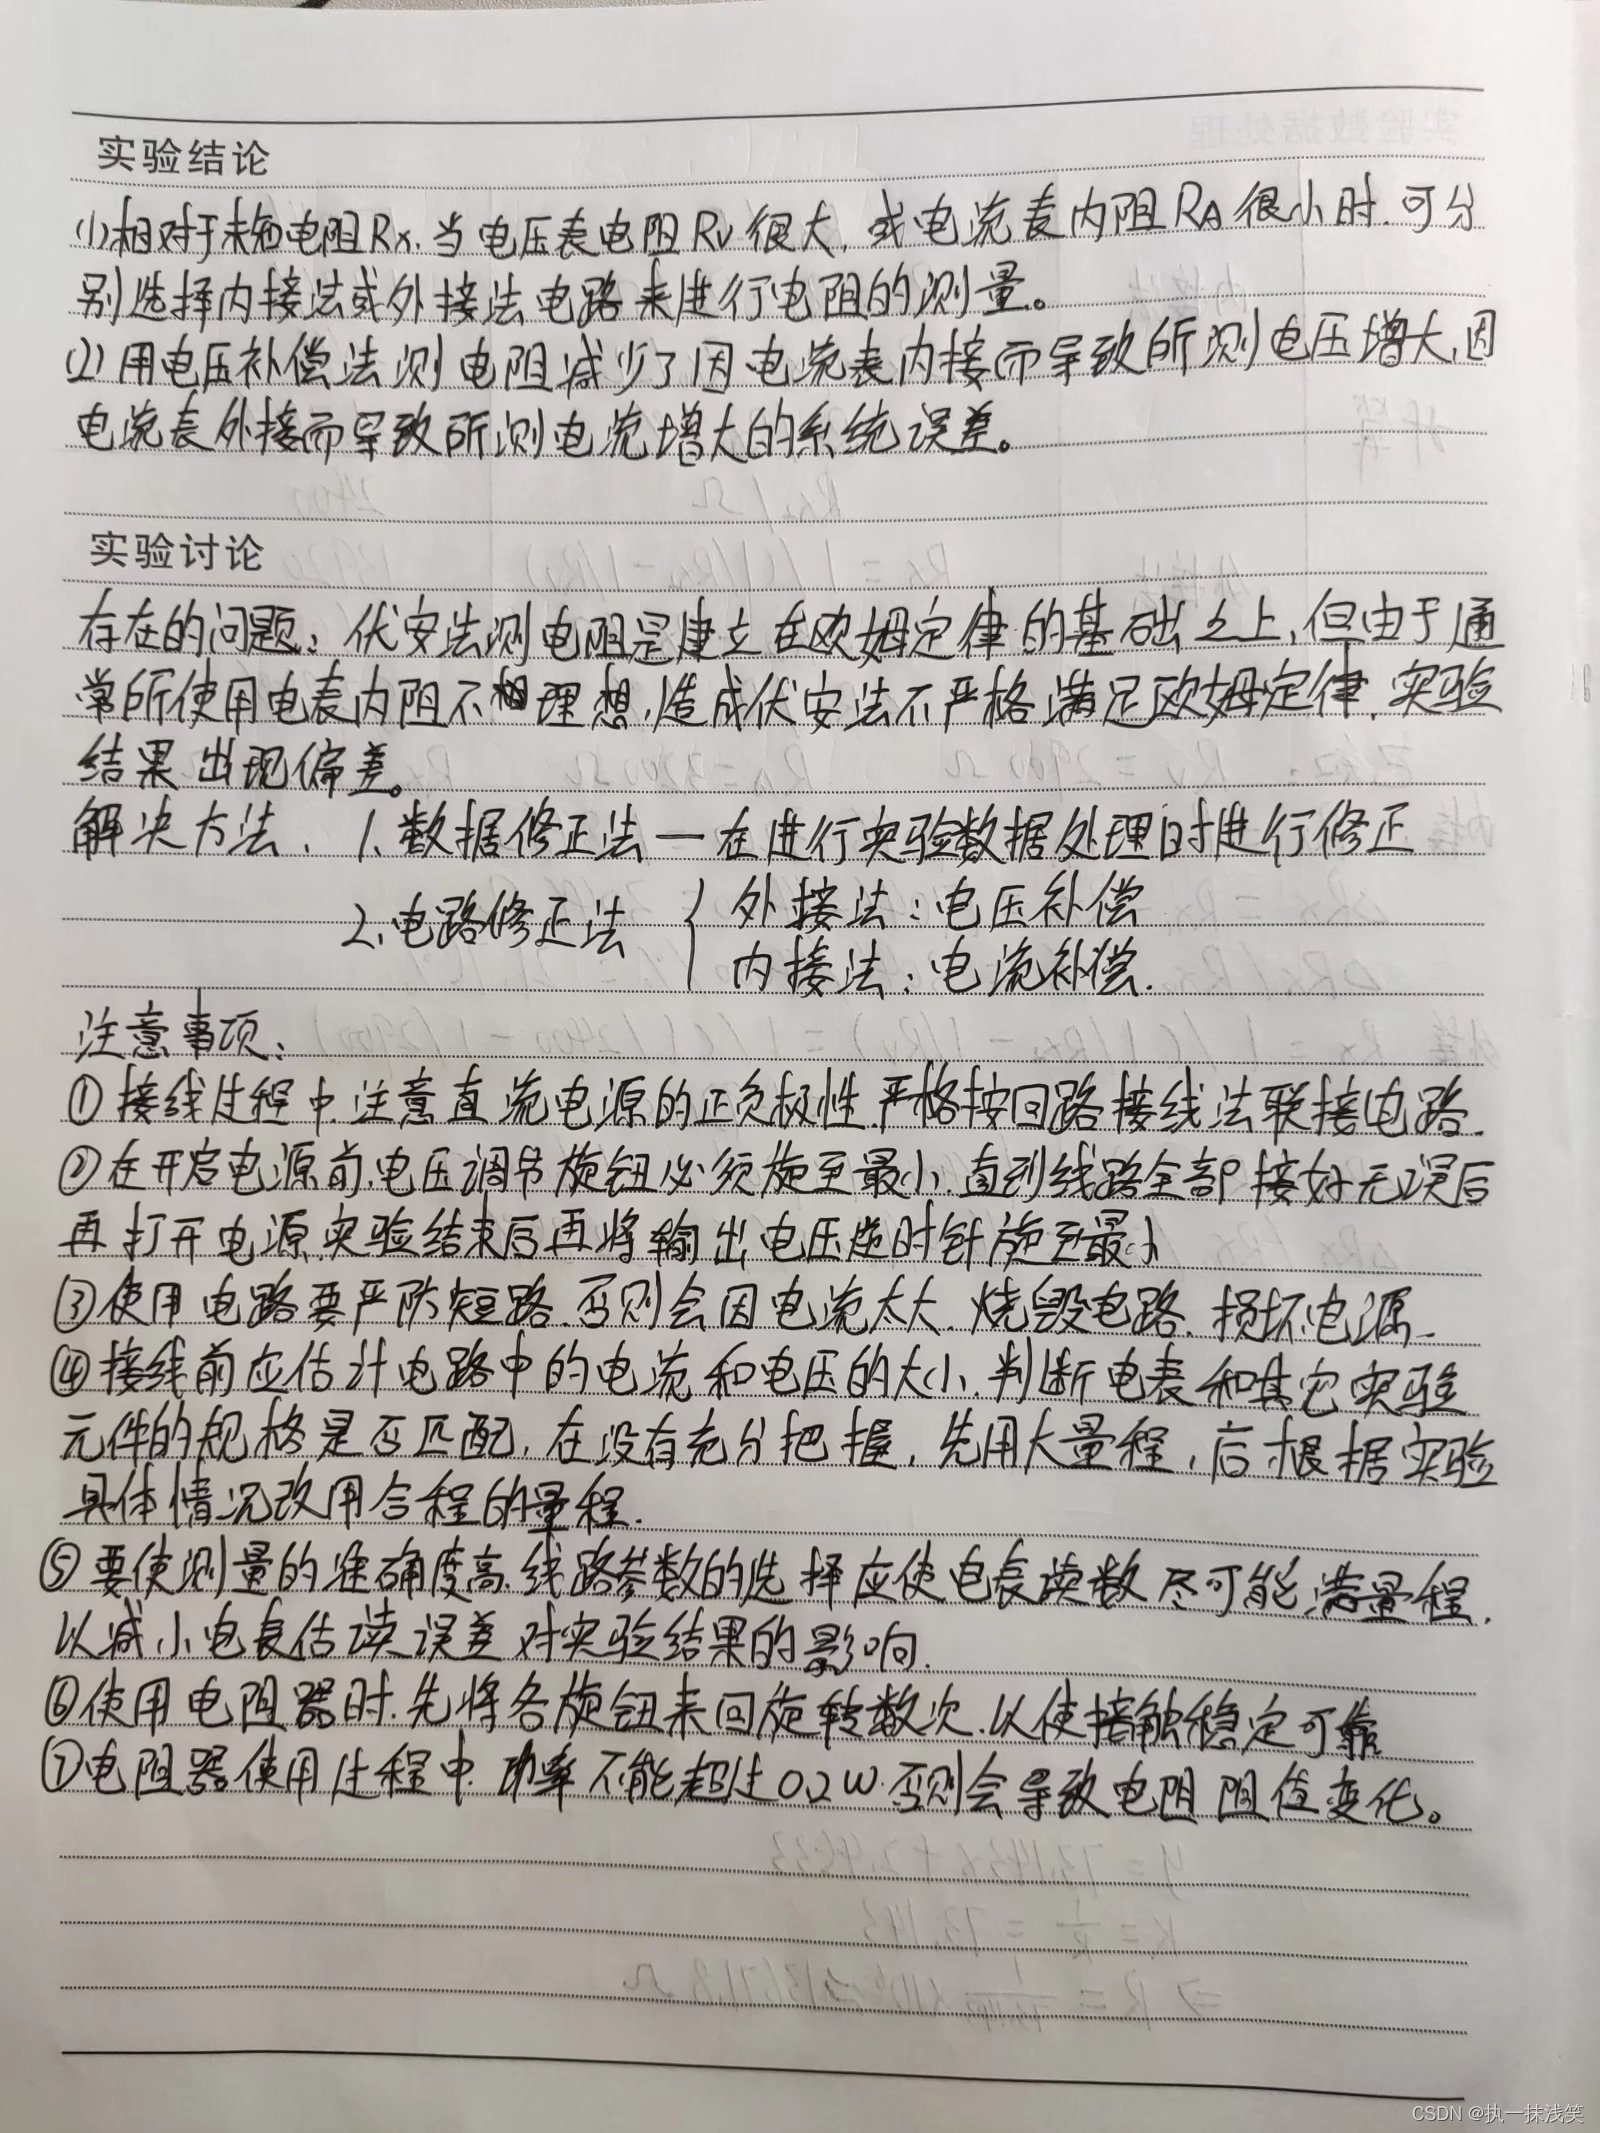 实验结论
(1)相对于未知电阻Rx.当电压表电阻Rv很大,或电流表内阻RA很小时.可分
别选择内接法或外接法电路来进行电阻的测量。
(2)用电压补偿法测电阻减少了因电流表内接而导致所测电压增大,因
电流表外接而导致所测电流增大的系统误差。
实验讨论
存在的问题:伏安法测电阻是建立在欧姆定律的基础之上,但由于通
常所使用电表内阻不理想,造成伏安法不严格满足欧姆定律,实验
结果出现偏差。
解决方法、1.数据修正法—在进行实验数据处理时进行修正
2.电路修正法{外接法:电压补偿
内接法:电流补偿.
注意事项:
①接线过程中.注意直流电源的正负极性.严格按回路接线法联接电路.
②在开启电源前.电压调节旋钮必须旋至最小.直到线路全部接好无误后
再打开电源.实验结束后再将输出电压逆时针旋至最小
③使用电路要严防短路.否则会因电流太大.烧毁电路.损坏电源.
④接线前应估计电路中的电流和电压的大小.判断电表和其它实验
元件的规格是否匹配,在没有充分把握,先用大量程,后根据实验
具体情况改用合程的量程.
⑤要使测量的准确度高.线路参数的选择应使电表读数尽可能满量程.
以减小电表估读误差对实验结果的影响.
⑥使用电阻器时.先将各旋钮来回旋转数次.以使接触稳定可靠
⑦电阻器使用过程中.功率不能超过0.2W.否则会导致电阻阻值变化。
CSDN @执一抹浅笑